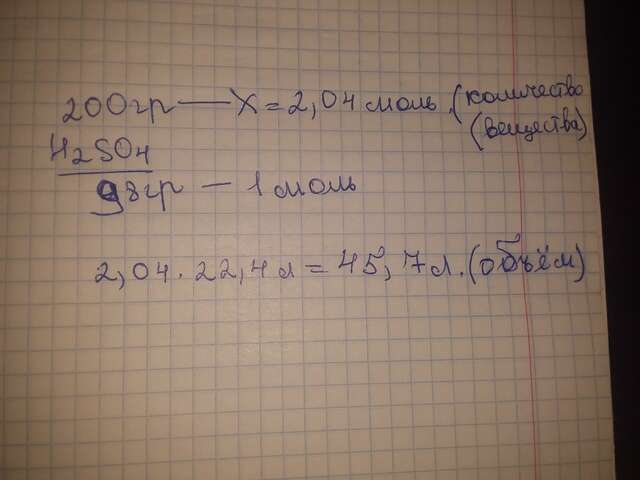 200гр — X = 2,04 моль (количество
(вещества)
H2SO4
98гр — 1 моль
2,04 · 22,4 л = 45,7 л. (объём)